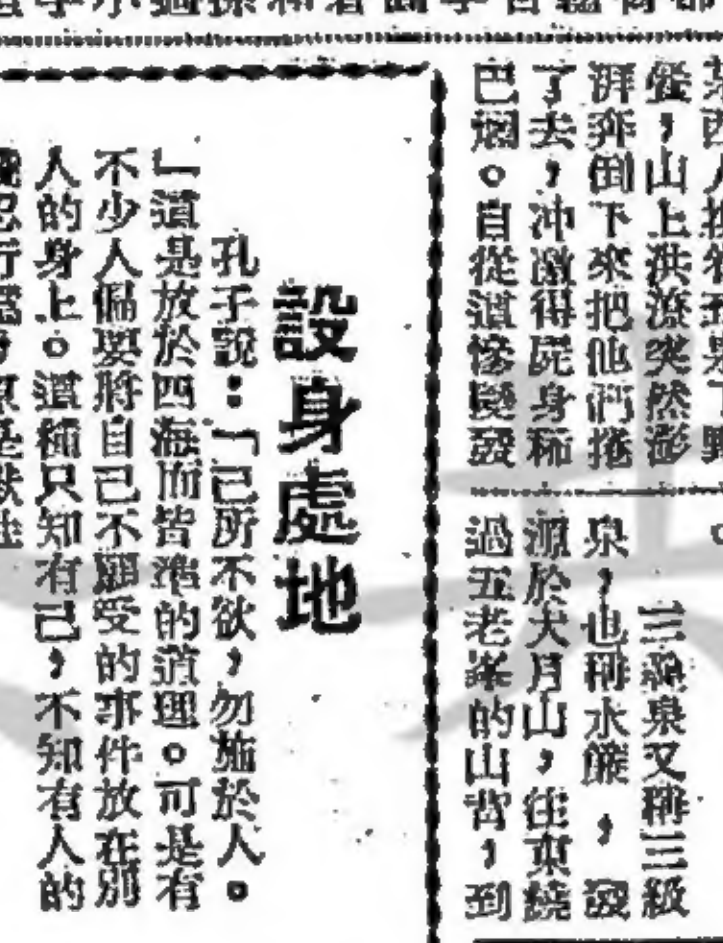 瀅，山上洪潦突然澎
湃奔倒下來把他們捲
了去，沖激得屍身稀
巴爛。自從這慘變發
三疊泉又稱三級
泉，也稱水簾，發
源於大月山，往東繞
過五老峯的山背，到
設身處地
孔子說：「己所不欲，勿施於人。
」這是放於四海而皆準的道理。可是有
不少人偏要將自己不願受的事件放在別
人的身上。這種只知有己，不知有人的